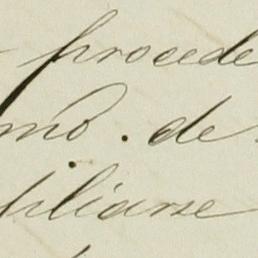 procede
mo. de
biliarse